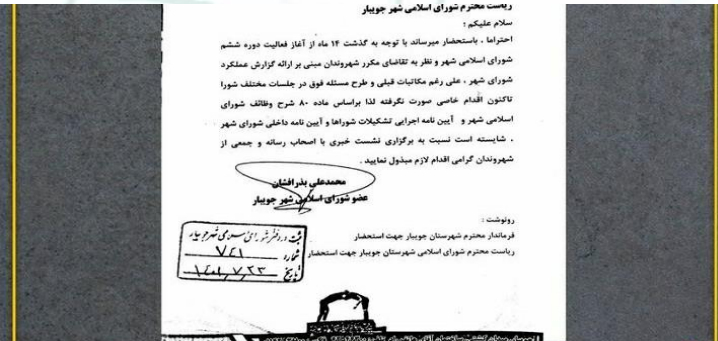 ریاست محترم شورای اسلامی شهر جویبار
سلام علیکم ؛
احتراما ، باستحضار میرساند با توجه به گذشت ۱۴ ماه از آغاز فعالیت دوره ششم
شورای اسلامی شهر و نظر به تقاضای مکرر شهروندان مبنی بر ارائه گزارش عملکرد
شورای شهر ، علی رغم مکاتبات قبلی و طرح مسئله فوق در جلسات مختلف شورا
تاکنون اقدام خاصی صورت نگرفته لذا براساس ماده ۸۰ شرح وظائف شورای
اسلامی شهر و آیین نامه اجرایی تشکیلات شوراها و آیین نامه داخلی شورای شهر
، شایسته است نسبت به برگزاری نشست خبری با اصحاب رسانه و جمعی از
شهروندان گرامی اقدام لازم مبذول نمایید .
محمدعلی بذرافشان
عضو شورای اسلامی شهر جویبار
رونوشت :
فرماندار محترم شهرستان جویبار جهت استحضار
ریاست محترم شورای اسلامی شهرستان جویبار جهت استحضار
ثبت در دفتر شورای اسلامی شهر جویبار
شماره ۷۲۱
تاریخ ۱۴۰۱,۷,۲۳